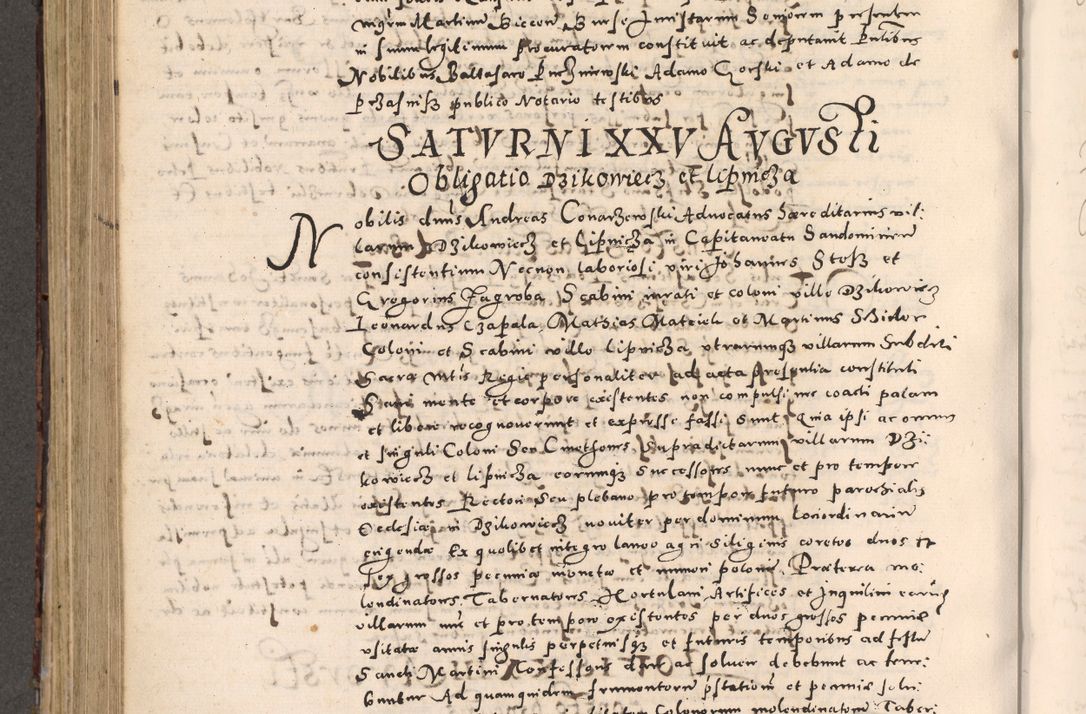 in suum legitimum procuratorem constituit ac deputavit Pntibus
Nobilibus Baltasaro Adamo Gorski et Adamo de
Przasnisz publico Notario testibus
SATVRNI XXV AVGVSTi
Obligatio Dzikowiecz et Lipnicza
Nobilis dnus Andreas Conarzewski Advocatus haereditarius vil:
larum Dzikowiecz et Lipnicza in Capitaneatu Sandomirien
consistentium Necnon laboriosi viri Johannes Stosz et
Gregorius Jagroba Scabini iurati et coloni villae Dzikowiecz
Leonardus Czapala, Mathias et Martinus
Coloni et Scabini villae Lipnicza utrarumq villarum Subditi
Sacrae Mtis Regie personaliter ad acta presentia constituti
Sani mente et corpore existentes non compulsi nec coacti palam
et libere recognoverunt et expresse fassi sunt Quia ipsi ac omnes
et singuli Coloni Seu Cmethones Supradictarum villarum Dzi:
kowiecz et Lipnicza eorumq successores nunc et pro tempore
existentes Rectori Seu plebano pro tempore futuro parochialis
Ecclesiae in Dzikowiecz noviter per dominum Lociordinarium
erigendae Ex quolibet integro laneo agri siliginis coretos duos et
sex grossos pecuniae monetae et numeri polonie, Praeterea mo:
lendinatores, Tabernatores Hortulani, Artifices et Inquilini earund
villarum nunc et pro tempore existentes per duos grossos pecuniae
usitatae annis singulis perpetuisq et futuris temporibus ad festum
Sancti Martini Confessoris dare ac solvere debebunt ac tene:
buntur Ad quamquidem frumentorum pstationem et pecuniae solu:
Colonorum molendinatorum Taber: